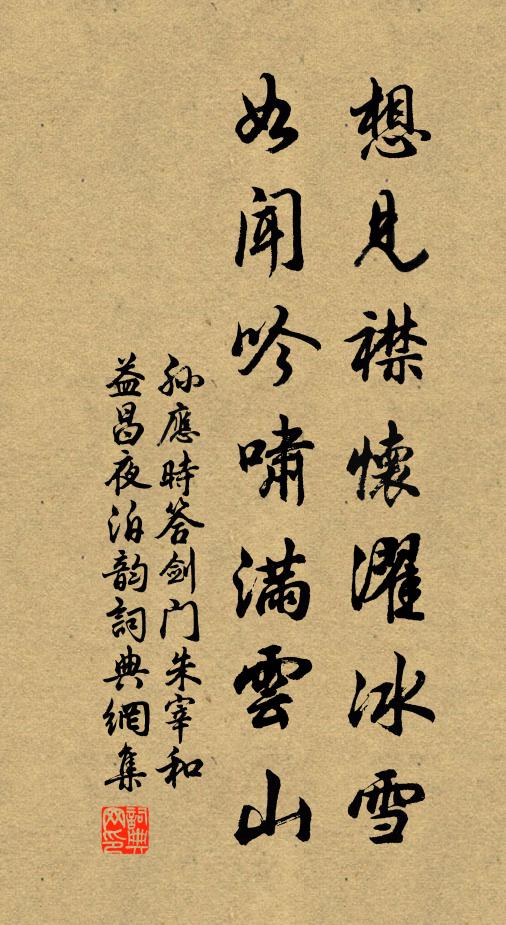 想見襟懷濯冰雪
如聞吟嘯满雲山
孙應時答劍门朱宰和
益昌夜泊韵詞典網集
詞典网印